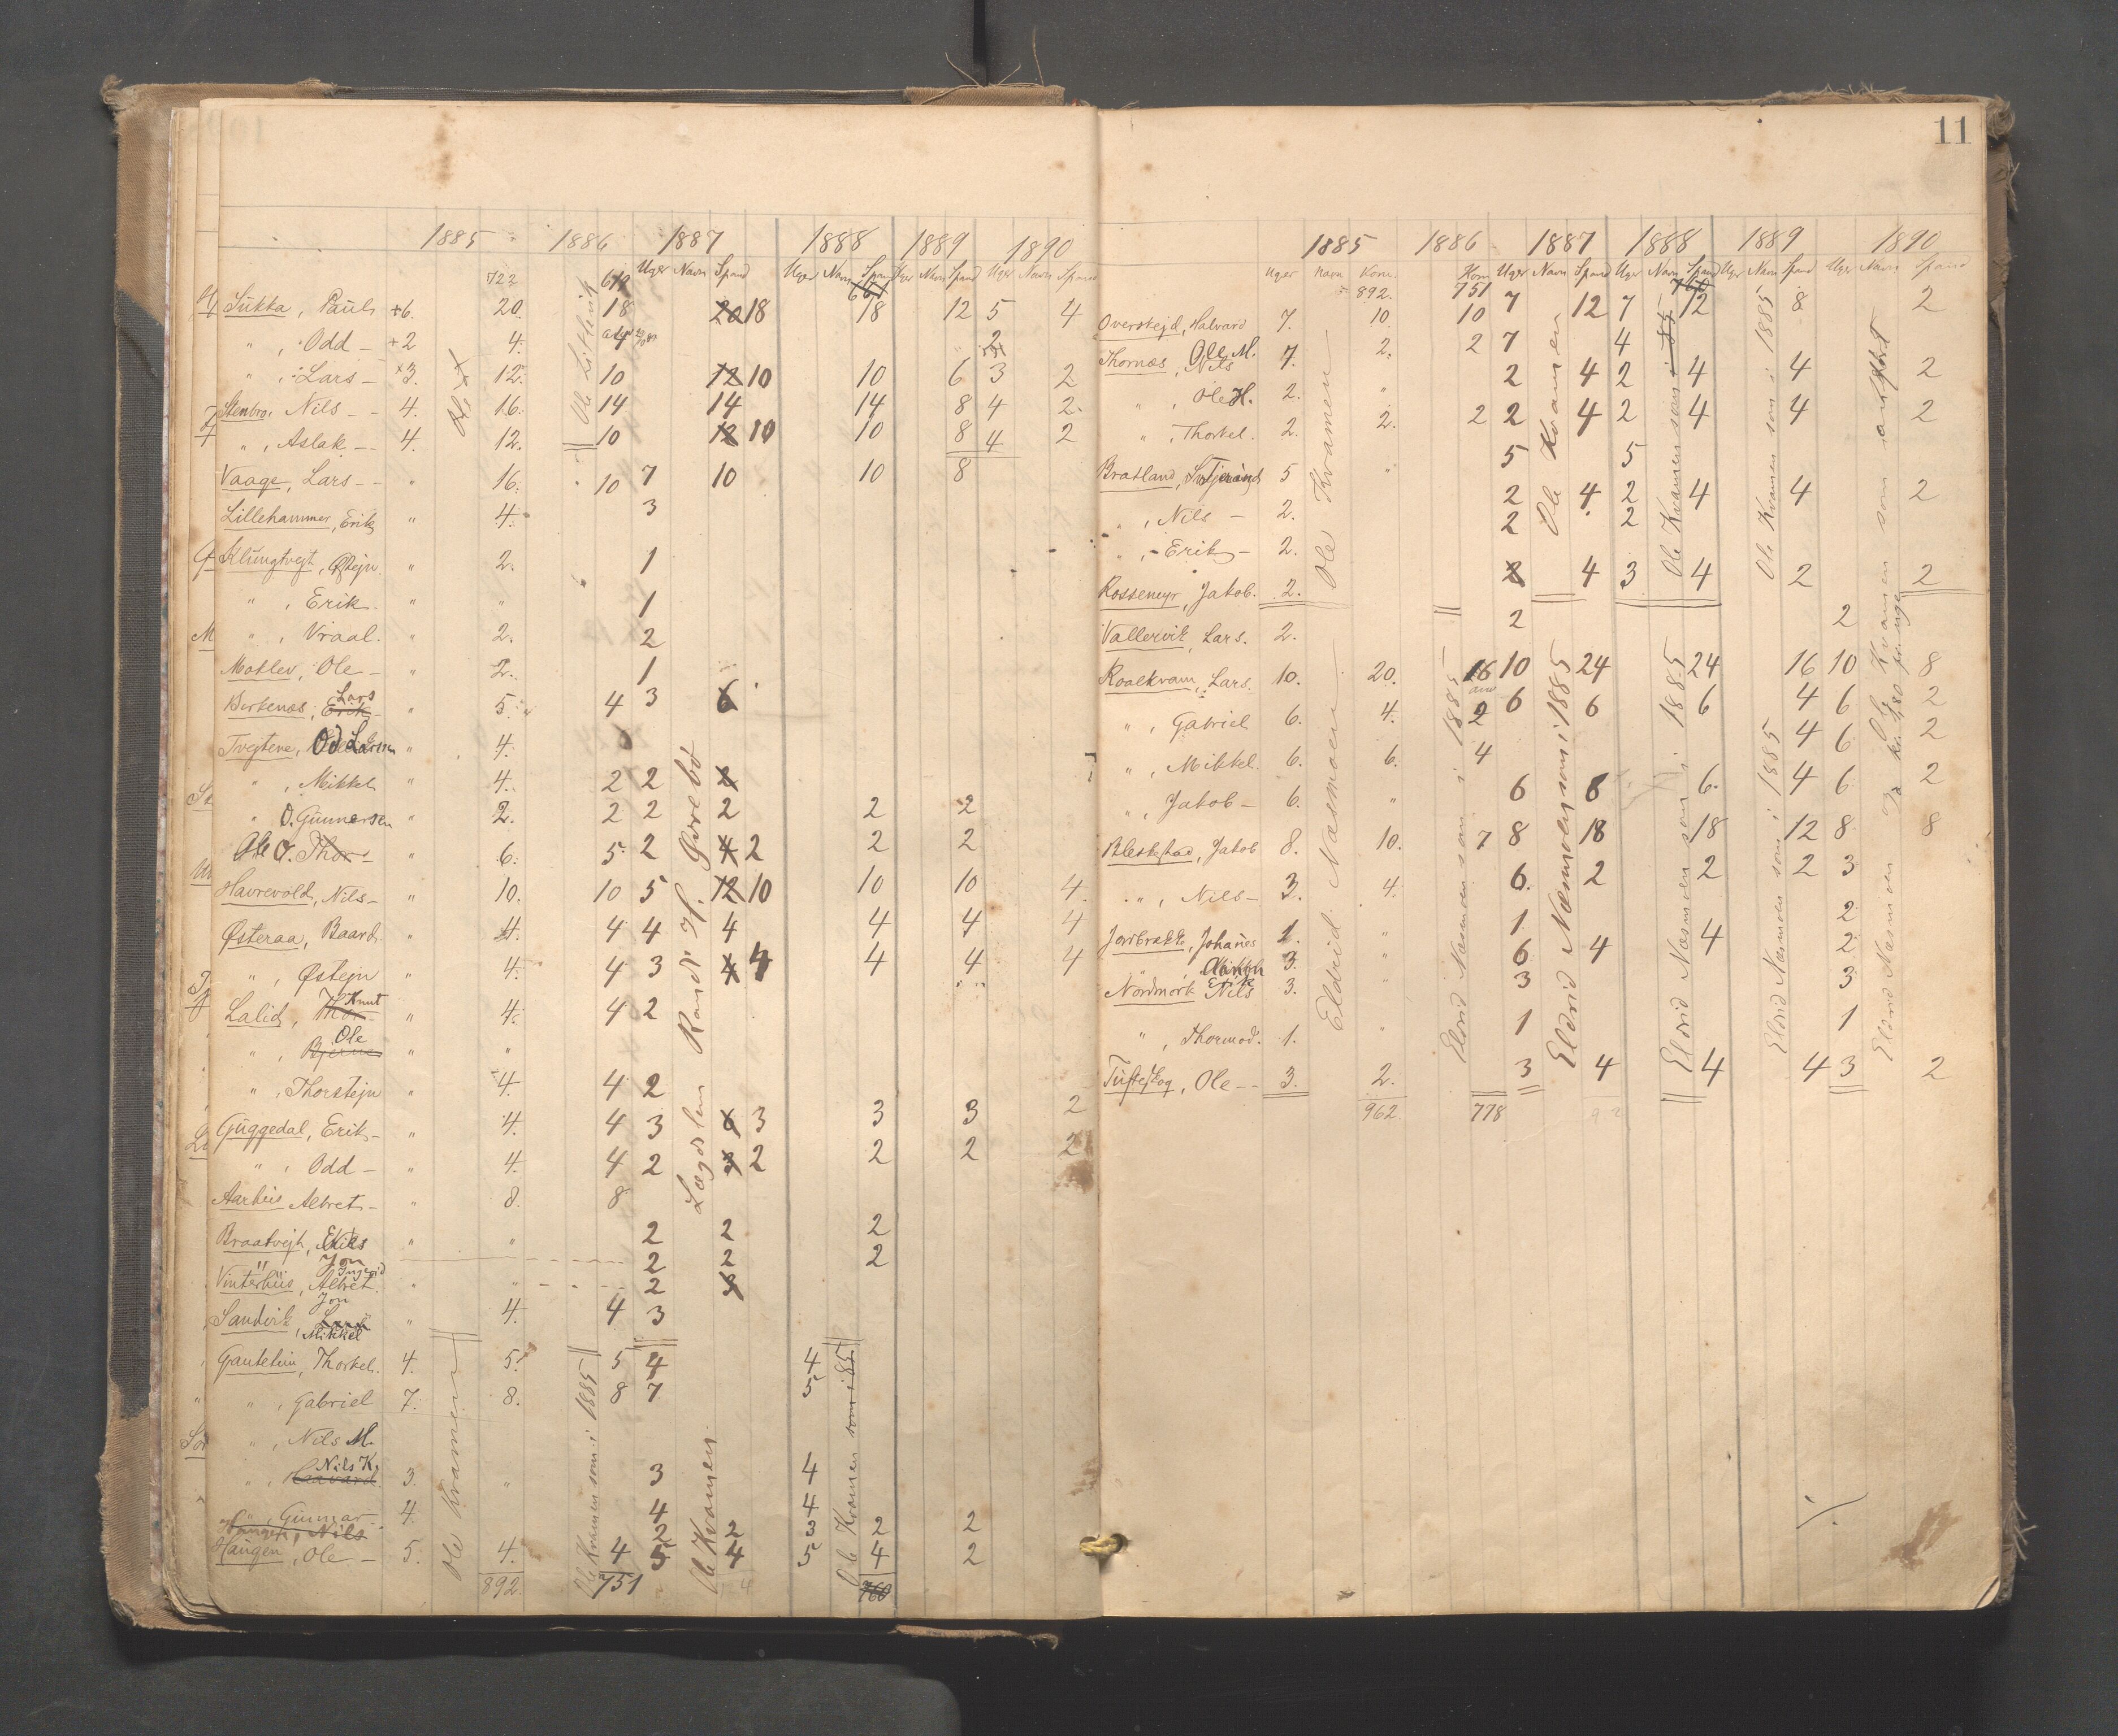 1885 1886 1887 1888 1889 1890
Uger Navn Spand Uger Navn Spand Uger Navn Spand Uger Navn Spand
722
Sukka, Pauls +6. 20. 18 20 18 18 12 5 4
" , Odd - +2 4. 4 2
" , Lars - 3. 12. 10 12 10 10 6 3 2
Stenbro, Nils - - 4. 16. 14 14 14 8 4 2.
" , Aslak - - 4. 12. 10 12 10 10 8 4 2
Vaage, Lars - - " 16. 10 7 10 10 8
Lillehammer, Erik " 4. 3
Klungtvejt, Østejn " 2. 1
" , Erik. " " 1
" , Vraal. " 2. 2
Motlev, Ole - " 2. 1
Birkenæs, Erik Lars " 5. 4 3 6
Tvejtene, Od Larsen " 4.
" , Mikkel " 4. 2 2 2
" O. Gunnersen " 2. 2 2 2 2 2
Ole O. Thor - " 6. 5 2 4 2 2 2
Havrevold, Nils - " 10. 10 5 12 10 10 10 4.
Østeraa, Baard " 4. 4 4 4 4 4 4
" , Østejn " 4. 4 3 4 4 4 4 4
Lalid, Thor Knut " 4. 4 2
" , Bjerne Ole " "
" , Thorstejn " 4. 4 2
Guggedal, Erik - " 4. 4 3 6 3 3 3 2
" , Odd - " 4. 4 2 3 2 2 2 2
Aarhus Albret - " 8. 8
Braatvejt, Nils " " 2 2 2
" Jon 2 2 2
Vinterhus, Albret Ingerid " " 2 3
Sandvik, Jon Mikkel " 4. 4 3
Gautetun, Thorkel. 4. 5. 5 4 4
" , Gabriel 7. 8. 8 7 5
" , Nils M.
" , Haavard Nils K. 3. " 3 4
" , Gunnar - 4. 4 4
Haugen, Nils 2 2 3 2 2
Haugen, Ole - 5. 4. 4 5 4 5 4 2
892. 751 760
Ole Kvamen
Ole Kvamen som i 1885
Lægdslem Randi H. Gørebø
Ole Kvamen
Ole Kvamen som i 85
11
1885 1886 1887 1888 1889 1890
Uger Navn Korn. Korn Uger Navn Spand Uger Navn Spand Uger Navn Spand Uger Navn Spand
892. 751 760
Overstejd, Halvard 7. 10. 10 7 12 7 12 8 2
Thornæs, Nils Ole M. 7. 2. 2 7 4
" , Ole H. 2. " 2 4 2 4 4 2
" , Thorkel. 2. 2. 2 2 4 2 4 4 2
Bratland, 5 " 5 5
" , Nils - 2. 2 4 2 4 4 2
" , Erik - 2. 2 2
Rossemyr, Jakob. 2. 2 4 3 4 2 2
Vallervik, Lars. 2. 2 2
Roalkvam, Lars. 10. 20. 16 10 24 24 16 10 8
" , Gabriel 6. 4. 2 6 6 6 4 6 2
" , Mikkel. 6. 6. 4 4 6 2
" , Jakob - 6. " 6 6 6. 4 6 2
Bleskestad, Jakob 8. 10. 7 8 18 18 12 8 8
" , Nils - 3. 4. 6. 2 2 2 3
Jordbrække, Johanes 1. " 1 2
3. " 6 4 4 2
Nordmork Nils Erik 3. " 3 3
" , Thormod. 1. " 1 1
Tufteskog, Ole - - 3. 2. 3 4 4 4 3 2
962. 778
Ole Kvamen
Eldrid Næsmoen
Eldrid Næsmoen som i 1885
Ole Kvamen
Eldrid Næsmoen som i 1885
Ole Kvamen som i 85
Eldrid Næsmoen som i 1885
Ole Kvamen som i 1885
Eldrid Næsmoen som i 1885
Eldrid Næsmoen